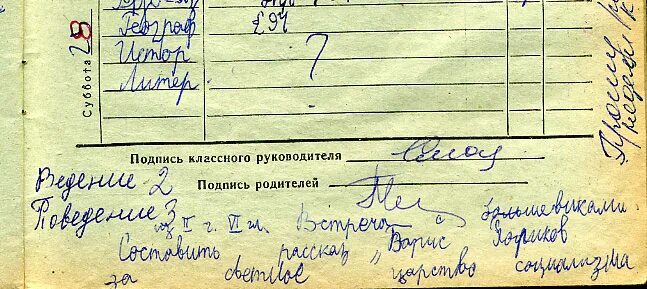 Суббота 28
Географ § 97
Истор
Литер
Подпись классного руководителя
Ведение 2
Подпись родителей
Поведение 3
из II г. VI гл. Встреча с большевиками
Составить рассказ „Варис
за светлое царство социализма
Прошу